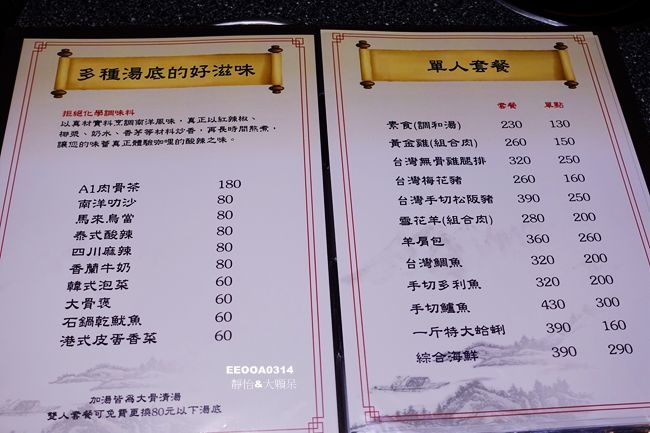 多種湯底的好滋味
拒絕化學調味料
以真材實料烹調南洋風味，真正以紅辣椒、
椰漿、奶水、香茅等材料炒香，再長時間熬煮，
讓您的味蕾真正體驗咖哩的酸辣之味。
A1肉骨茶 180
南洋叻沙 80
馬來烏當 80
泰式酸辣 80
四川麻辣 80
香蘭牛奶 80
韓式泡菜 60
大骨煲 60
石鍋乾魷魚 60
港式皮蛋香菜 60
加湯皆為大骨清湯
雙人套餐可免費更換80元以下湯底
EEOOA0314
靜怡&大顆呆
單人套餐
套餐 單點
素食(調和湯) 230 130
黃金雞(組合肉) 260 150
台灣無骨雞腿排 320 250
台灣梅花豬 260 160
台灣手切松阪豬 390 250
雪花羊(組合肉) 280 200
羊肩包 360 260
台灣鯛魚 320 200
手切多利魚 320 200
手切鱸魚 430 300
一斤特大蛤蜊 390 160
綜合海鮮 390 290